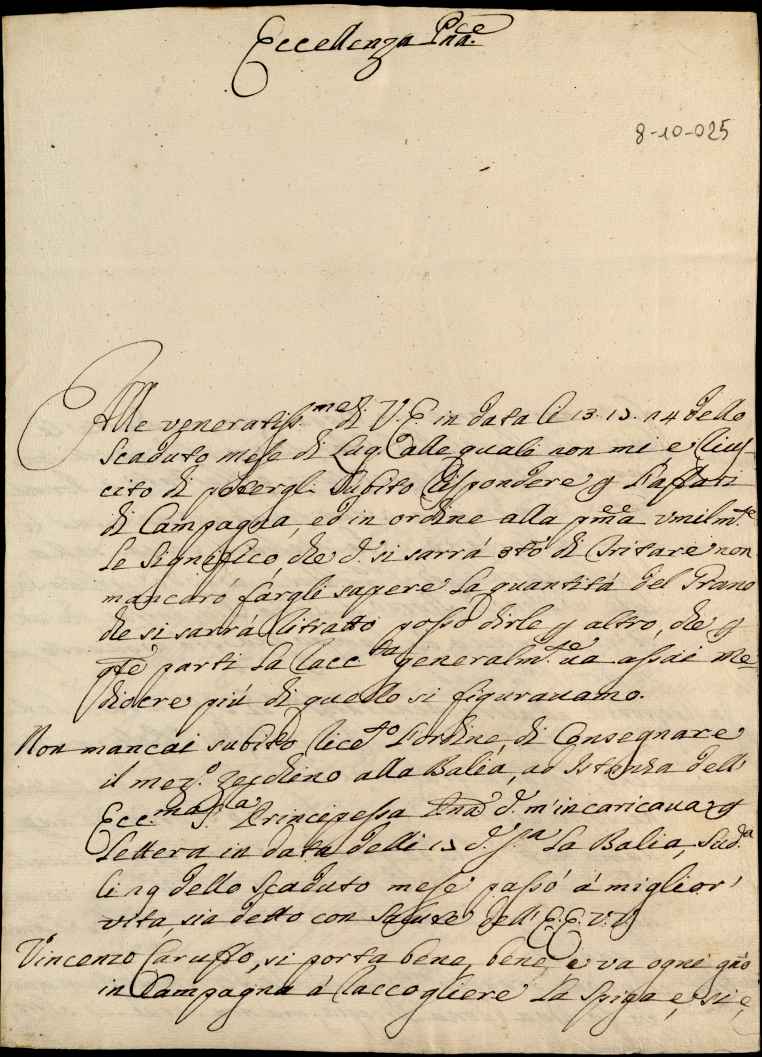 Eccellenza Pñã.ce
8-10-025
Alle veneratiss.me di V.E. in data li 13. 13. 14 dello
scaduto mese di Lug.o alle quali non mi è rius-
cito di potergli subito rispondere p l'affari
di Campagna, ed in ordine alla pr̃ma vmilm.te
le significo, che q.do si sarrá sto di tritare non
mancaró fargli sapere la quantitá del Grano
che si sarrá ritratto posso dirle p altro, che p
q̃te parti la racc.ta generalm.te va assai me-
diocre piú di quello si figurauamo.
Non mancai subito rice.to l'ordine di consegnare
il mez.o zecchino alla Balia, ad istanza dell
Ecc.ma S.ra Principessa Pñã q.do m'incaricaua p
Lettera in data delli 13 d.o p.a La Balia, sud.a
li 29 dello scaduto mese passó á miglior'
vita, sia detto con salute dell' E.E. V.V.
Vincenzo Caruffo, si porta bene, bene, e va ogni gño
in Campagna á raccogliere la spiga e, si e,